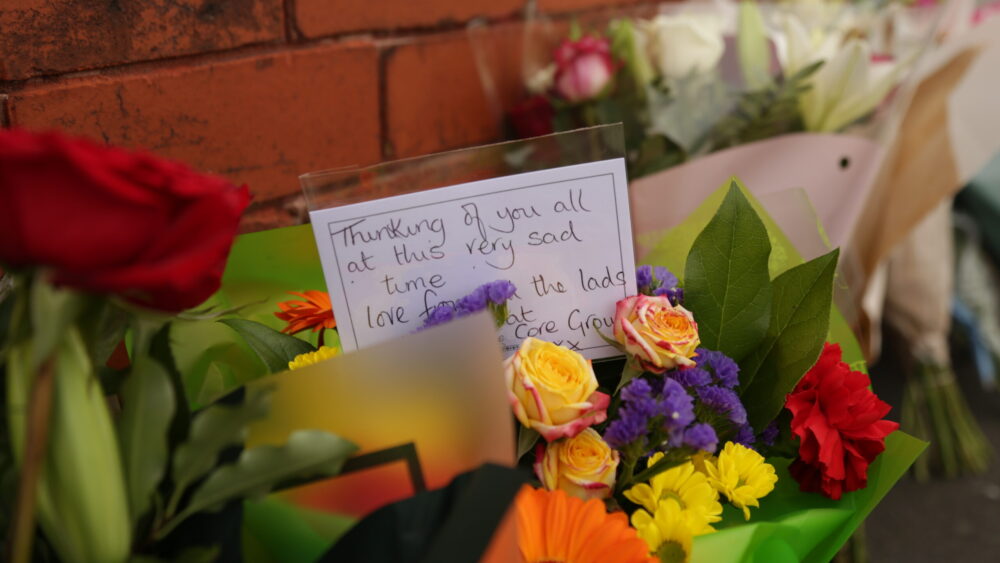 Thinking of you all
at this very sad
time
love from the lads
at
Core Group
xx